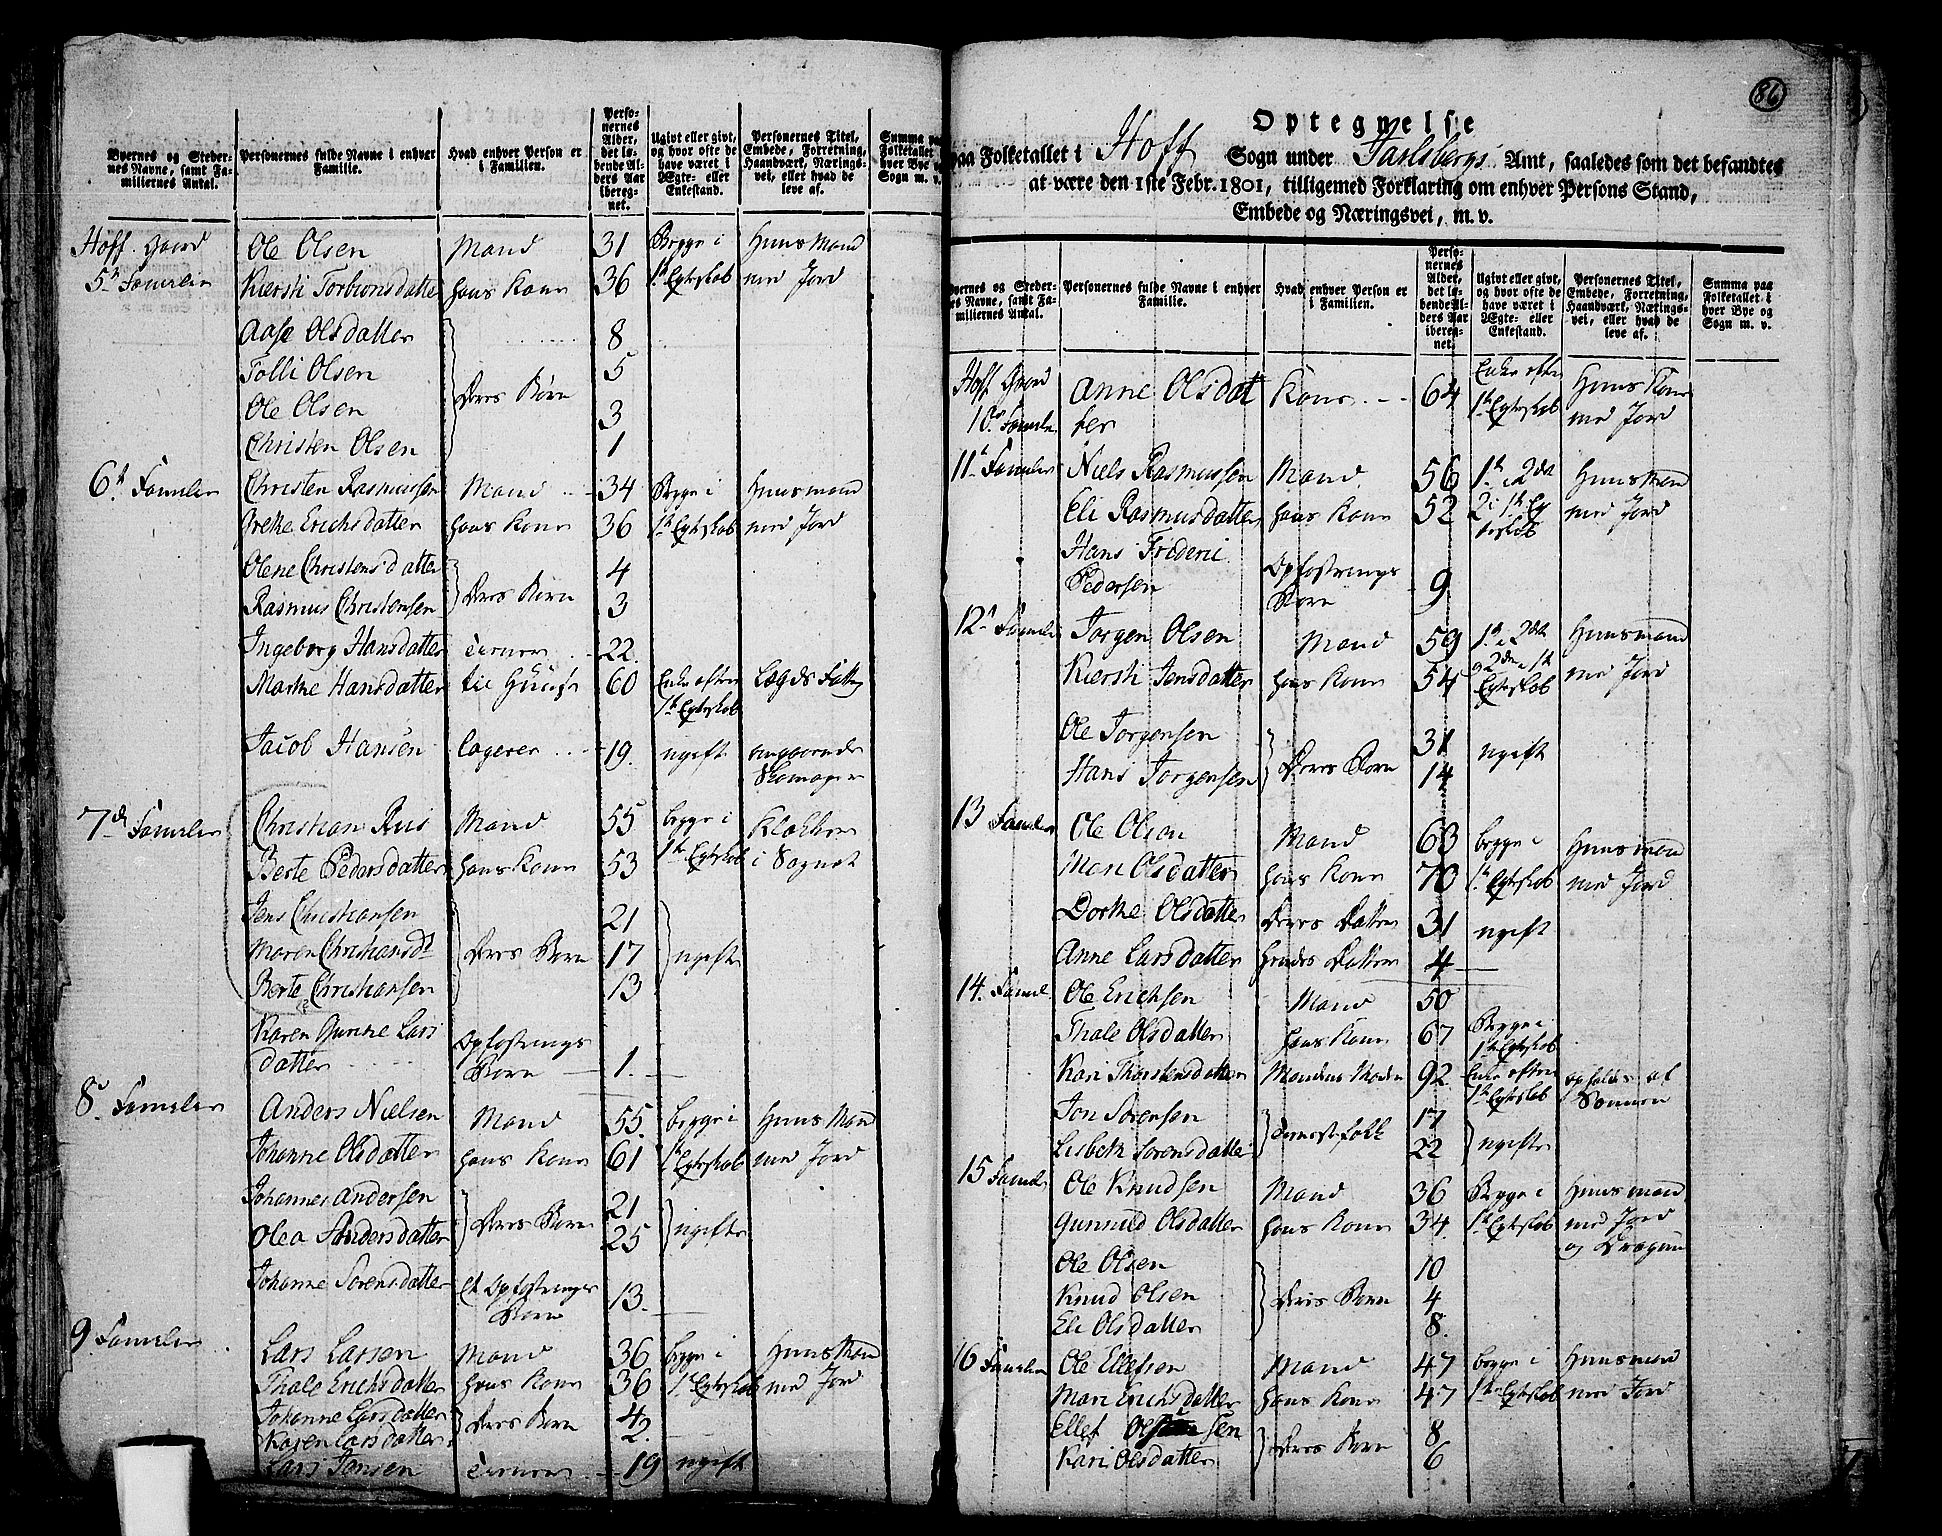 Byernes og Steder-
nes Navne, samt Fa-
miliernes Antal.
Personernes fulde Navne i enhver
Familie.
Hvad enhver Person er
i Familien.
Perso-
nernes
Alder,
det lø-
bende Al-
ders Aar
ibereg-
net.
Ugivt eller givt,
og hvor ofte de
have været i
Ægte- eller
Enkestand.
Personernes Titel,
Embede, Forretning,
Haandværk, Nærings-
vei, eller hvad de
leve af.
Summa paa
Folketallet
hver Bye og
Sogn m. v.
Hoff Gaard Ole Olsen Mand 31 Begge i Huusmand
5te Familie Kiersti Torbionsdatter hans Kone 36 1te Egteskab med Jord
Aase Olsdatter 8
Tolli Olsen 5
Ole Olsen Deres Børn 3
Christen Olsen 1
6te Familie Christen Rasmussen Mand 34 Begge i Huusmand
Grethe Erichsdatter hans Kone 36 1te Egteskab med Jord
Olene Christensdatter 4
Rasmus Christensen Deres Børn 3
Ingeborg Hansdatter tiener 22
Marthe Hansdatter til Huuse 60 Enke efter Lægds Fattig
1te Egteskab
Jacob Hansen logerer 19 ugift
Skomager
7de Familie Christian Riis Mand 55 begge i Klokker
Berte Pedersdatter hans Kone 53 1te Egteskab i Sognet
Jens Christiansen 21
Maren Christiansdt Deres Børn 17 ugifte
Berte Christiansen 13
Karen Gurine Lars
datter Opfostrings
Børn 1
8de Familie Anders Nielsen Mand 55 begge i Huusmand
Johanne Olsdatter hans Kone 61 1te Egteskab med Jord
Johannes Andersen 21
Olea Andersdatter Deres Børn 25 ugifte
Johanne Sorensdatter et Opfostrings
Børn 13
9 Familie Lars Larsen Mand 36 begge i Huusmand
Thale Erichsdatter hans Kone 36 1te Egteskab med Jord
Johanne Larsdatter Deres Børn 4
Karen Larsdatter 2
Lars Jansen tiener 19 ugift
86
Optegnelse
paa Folketallet i Hoff Sogn under Jarlsbergs Amt, saaledes som det befandtes
at være den 1ste Febr. 1801, tilligemed Forklaring om enhver Persons Stand,
Embede og Næringsvei, m. v.
Byernes og Steder-
nes Navne, samt Fa-
miliernes Antal.
Personernes fulde Navne i enhver
Familie.
Hvad enhver Person er
i Familien.
Perso-
nernes
Alder,
det lø-
bende Al-
ders Aar
ibereg-
net.
Ugivt eller givt,
og hvor ofte de
have været i
Ægte- eller
Enkestand.
Personernes Titel,
Embede, Forretning,
Haandværk, Nærings-
vei, eller hvad de
leve af.
Summa paa
Folketallet i
hver Bye og
Sogn m. v.
Hoff Gaard Anne Olsdat Kone 64 Enke efter Huuskone
10de Familie ter 1te Egteskab med Jord
11te Familie Niels Rasmussen Mand 56 1te i 2det Huusmand
Eli Rasmusdatter hans Kone 52 2 i 1te Eg med Jord
teskab
Hans Frideric
Pedersen Opfostrings
Børn 9
12te Familie Jorgen Olsen Mand 59 1te i 2det Huusmand
Kiersti Jensdatter hans Kone 54 2den i 1te med Jord
Egteskab
Ole Jorgensen 31 ugift
Hans Jorgensen Deres Børn 14
13 Familie Ole Olsen Mand 63 begge i Huusmand
Mari Olsdatter hans Kone 70 1te Egteskab med Jord
Dorthe Olsdatter Deres Datter 31 ugift
Anne Larsdatter hendes Datter 4
14. Famil Ole Erichsen Mand 50
Thale Olsdatter hans Kone 67 Begge i
1te Egteskab
Kari Thorstensdatter Mandens Moder 92 Enke efter opholdes af
1te Egteskab Sønnen
Jon Sorensen 17
Lisbeth Sorensdatter tienestefolk 22 ugifte
15 Famil Ole Knudsen Mand 36 Begge i Huusmand
Gunnild Olsdatter hans Kone 34 1te Egteskab med Jord
og Dragun
Ole Olsen 10
Knud Olsen Deres Børn 4
Eli Olsdatter 8
16 Familie Ole Ellefsen Mand 47 begge i Huusmand
Mari Erichsdatter hans Kone 47 1te Egteskab med Jord
Ellef Olsen 8
Kari Olsdatter Deres Børn 6